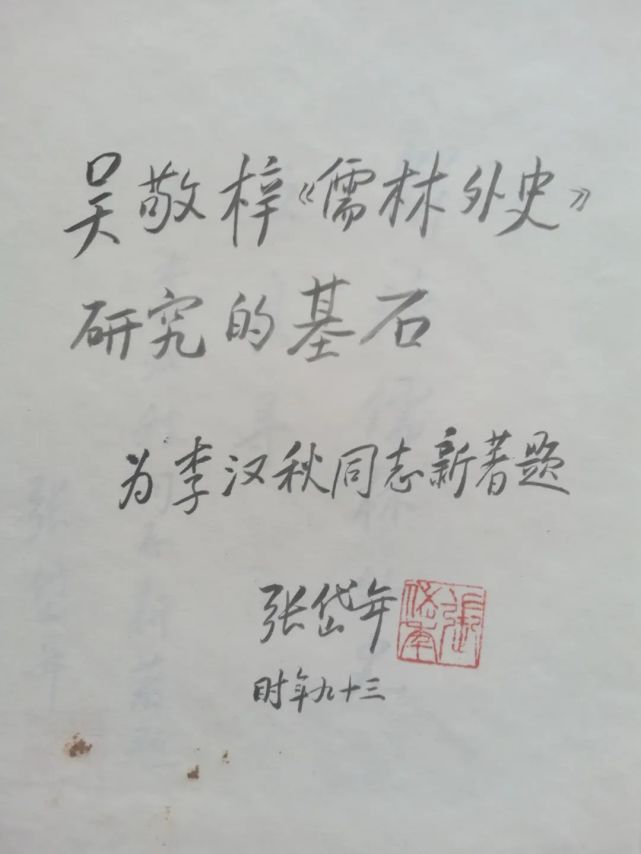 吴敬梓《儒林外史》
研究的基石
为李汉秋同志新著题
张岱年
时年九十三
张岱年